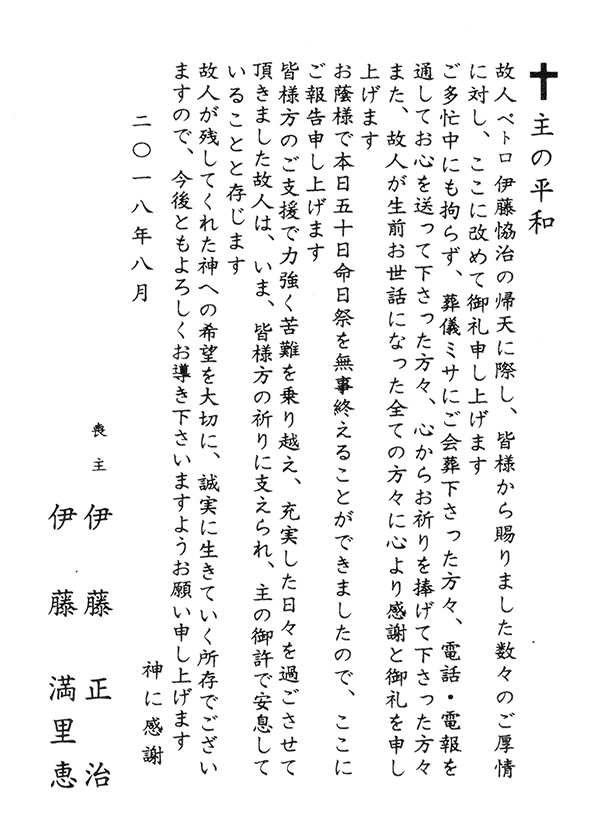 ✝ 主の平和
故人ペトロ伊藤恊治の帰天に際し、皆様から賜りました数々のご厚情
に対し、ここに改めて御礼申し上げます
ご多忙中にも拘らず、葬儀ミサにご会葬下さった方々、電話・電報を
通してお心を送って下さった方々、心からお祈りを捧げて下さった方々
また、故人が生前お世話になった全ての方々に心より感謝と御礼を申し
上げます
お蔭様で本日五十日命日祭を無事終えることができましたので、ここに
ご報告申し上げます
皆様方のご支援で力強く苦難を乗り越え、充実した日々を過ごさせて
頂きました故人は、いま、皆様方の祈りに支えられ、主の御許で安息して
いることと存じます
故人が残してくれた神への希望を大切に、誠実に生きていく所存でござい
ますので、今後ともよろしくお導き下さいますようお願い申し上げます
神に感謝
二〇一八年八月
喪主 伊藤正治
伊藤満里恵